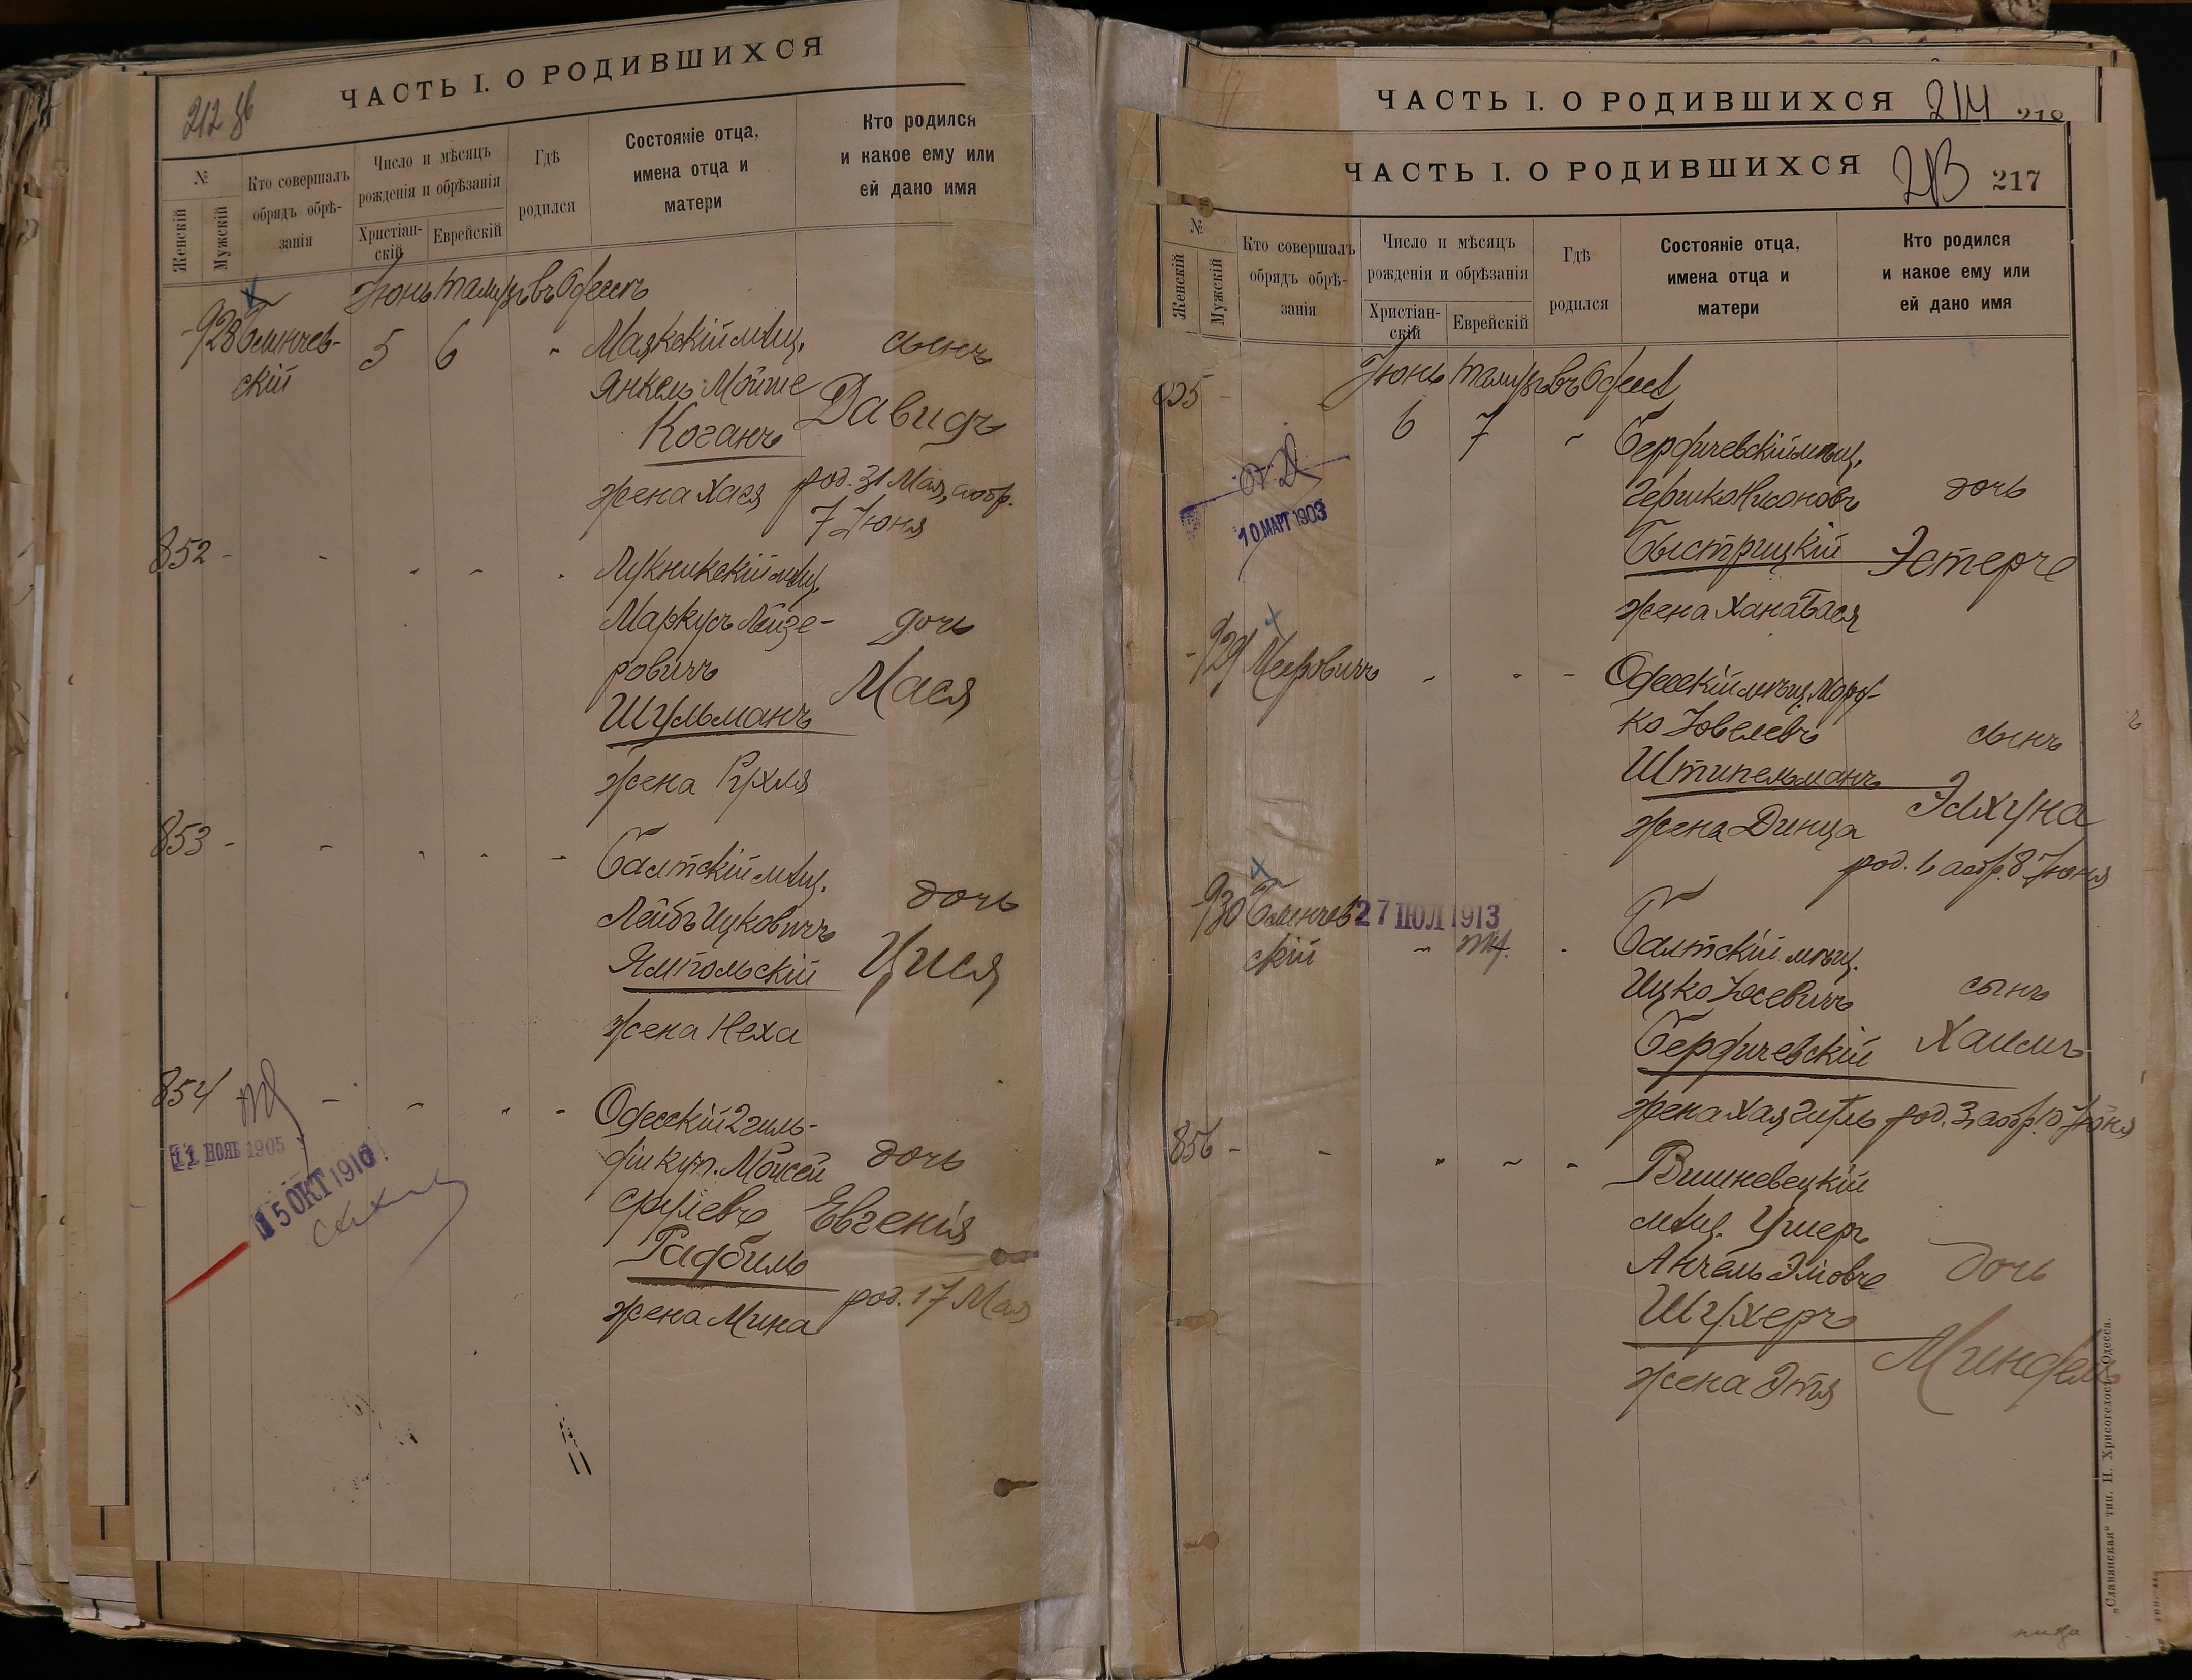 212 об
ЧАСТЬ I. О РОДИВШИХСЯ
№
Женскій
Мужскій
Кто совершалъ
обрядъ обрѣ-
занія
Число и мѣсяцъ
рожденія и обрѣзанія
Христіан-
скій
Еврейскій
Гдѣ
родился
Состояніе отца,
имена отца и
матери
Кто родился
и какое ему или
ей дано имя
Іюнь тамузъ въ Одессѣ
928 Блинчев-
скій
5 6 Маякскій мѣщ.
сынъ
Янкель Мойше
Коганъ
Давидъ
жена Хася
род. 31 Мая, а обр.
7 Іюня
852
Лукникскій мѣщ.
Маркусъ Лейзе-
дочь
ровичъ
Мася
Шульманъ
жена Рухля
853
Балтскій мѣщ.
дочь
Лейбъ Ицковичъ
Ямпольскій
Цися
жена Неха
854
Одесскій 2 гиль-
діи куп. Мойсей
дочь
Срулевъ
Евгенія
Радбиль
род. 17 Мая
жена Мина
11 НОЯБ 1905
15 ОКТ 1910
ЧАСТЬ I. О РОДИВШИХСЯ 214 218
ЧАСТЬ I. О РОДИВШИХСЯ 213 217
№
Женскій
Мужскій
Кто совершалъ
обрядъ обрѣ-
занія
Число и мѣсяцъ
рожденія и обрѣзанія
Христіан-
скій
Еврейскій
Гдѣ
родился
Состояніе отца,
имена отца и
матери
Кто родился
и какое ему или
ей дано имя
Іюнь тамузъ въ Одессѣ
855
6 7 Бердичевскій мѣщ.
Гершко Нисоновъ
дочь
Быстрицкій
Эстеръ
жена Хана Бася
10 МАРТ 1903
929 Мееровичъ
Одесскій мѣщ. Морд-
ко Іовелевъ
сынъ
Штипельманъ
Элхуна
жена Динца
род. 1, а обр. 8 Іюня
930 Блинчев
27 ІЮЛ 1913
скій
Балтскій мѣщ.
Ицко Іосевичъ
сынъ
Бердичевскій
Хаимъ
жена Хая Гитль
род. 3, а обр. 10 Іюня
856
Вишневецкій
мѣщ. Ушеръ
дочь
Шухеръ
Миндель
жена Этя
„Славянская" тип. Н. Хрисогелосъ, Одесса.